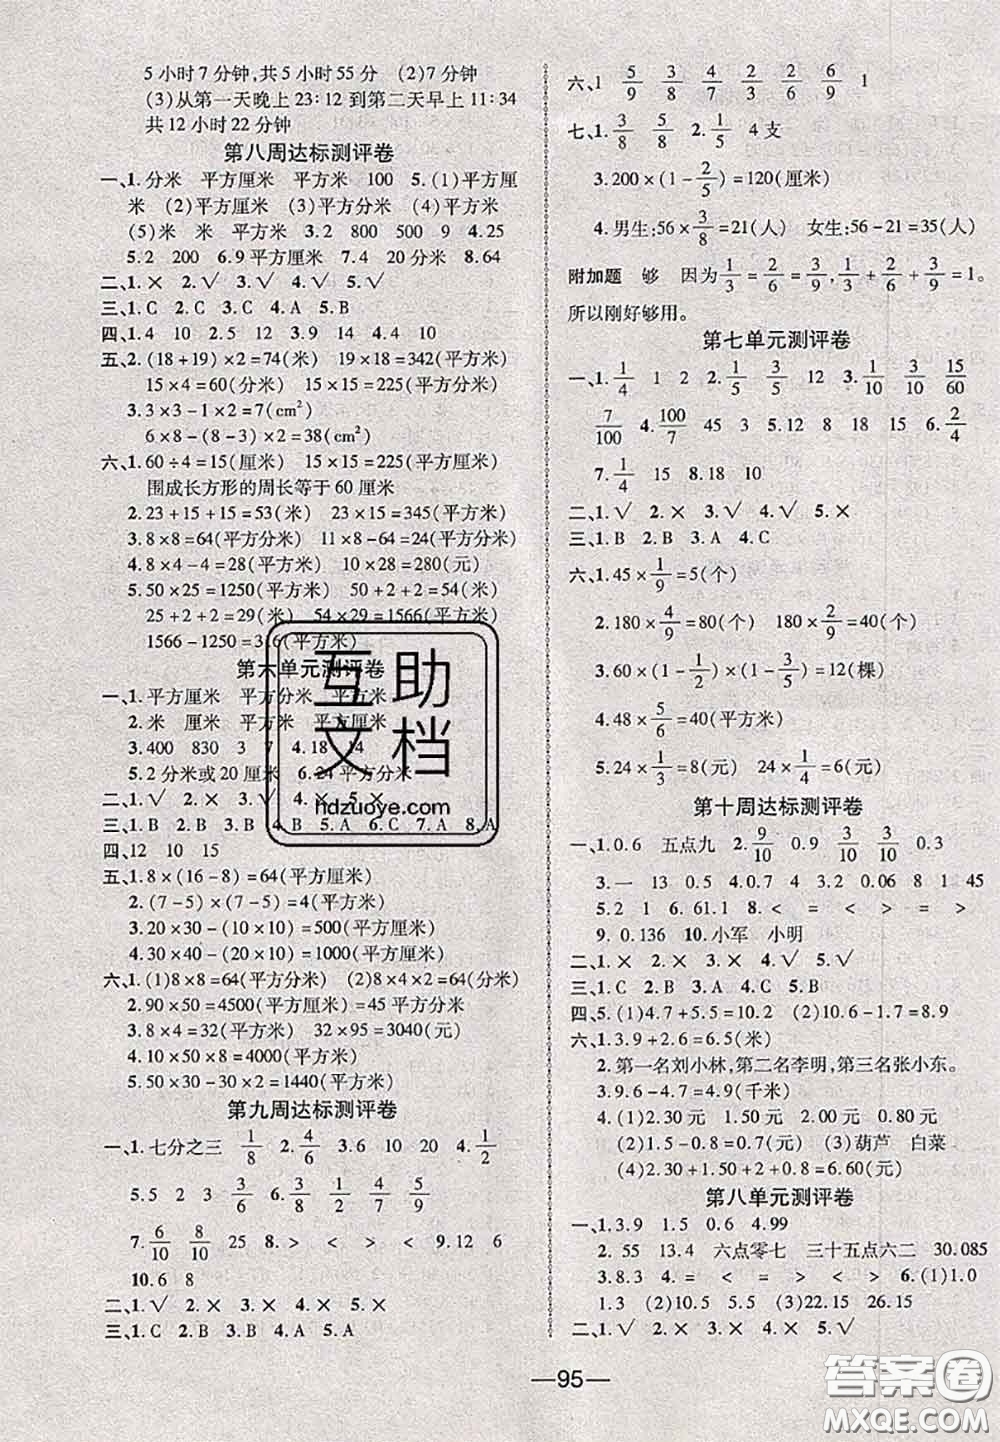 5 小时 7 分钟,共 5 小时 55 分 (2)7 分钟
(3)从第一天晚上 23:12 到第二天早上 11:34
共 12 小时 22 分钟
第八周达标测评卷
一、1.分米 平方厘米 平方米 100 5.(1)平方厘
米 (2)平方厘米 (3)平方分米 (4)平方米
(5)米 米 平方米 3.2 800 500 9 4.25
5.2 200 6.9 平方厘米 7.4 20 平方分米 8.64
二、1.× 2.√ 3.√ 4.√ 5.√
三、1.C 2.C 3.C 4.A 5.B
四、1.4 10 2.5 12 3.9 4.4 10
五、2.(18+19)×2=74(米) 19×18=342(平方米)
15×4=60(分米) 15×15=225(平方分米)
3.3×3-1×2=7(cm²)
6×8-(8-3)×2=38(cm²)
六、1.60÷4=15(厘米) 15×15=225(平方厘米)
围成长方形的周长等于 60 厘米
2.23+15+15=53(米) 23×15=345(平方米)
3.8×8=64(平方分米) 11×8-64=24(平方分米)
4.8×4-4=28(平方米) 10×28=280(元)
5.50×25=1250(平方米) 50+2+2=54(米)
25+2+2=29(米) 54×29=1566(平方米)
1566-1250=316(平方米)
第六单元测评卷
一、1.平方厘米 平方分米 平方米
2.米 厘米 平方米 平方厘米
3.400 830 3 7 4.18 14
5.2 分米或 20 厘米 6.24 平方分米
二、1.√ 2.× 3.√ 4.× 5.×
三、1.B 2.B 3.B 4.B 5.A 6.C 7.B 8.A
四、12 10 15
五、1.8×(16-8)=64(平方厘米)
2.(7-5)×(7-5)=4(平方米)
3.20×30-(10×10)=500(平方厘米)
4.30×40-(20×10)=1000(平方厘米)
六、1.(1)8×8=64(平方分米) (2)8×4×2=64(分米)
2.90×50=4500(平方厘米)=45 平方分米
3.8×4=32(平方米) 32×95=3040(元)
4.10×50×8=4000(平方米)
5.50×30-30×2=1440(平方米)
第九周达标测评卷
一、1.七分之三 1/8 2.4/6 3.6 10 20 4.1/2
5.5 2 3 3/6 6.3/8 1/2 4/7 5/8
7.6/10 8/10 25 8.> < > < 9.12 6
10.6 8
二、1.√ 2.× 3.× 4.× 5.×
三、1.C 2.B 3.B 4.A 5.A
六、1 5/9 3/8 4/7 2/6 2/9 6/9 1
七、1.3/8 5/8 2.1/4 4 支
3.200×(1-2/5)=120(厘米)
4.男生:56×3/8=21(人) 女生:56-21=35(人)
附加题 够 因为 1/3=2/6=3/9,1/3+2/6+3/9=1。
所以刚好够用。
第七单元测评卷
一、1.1/4 1 2 2.1/5 3/5 12 3.1/10 3/10 15/60
7/100 4.100/7 45 3 5.12 8 18 15 6.2/4
7.1/4 15 8.18 10
二、1.√ 2.× 3.√ 4.√ 5.×
三、1.B 2.B 3.A 4.C
六、1.45×1/9=5(个)
2.180×4/9=80(个) 180×2/9=40(个)
3.60×(1-1/2)×(1-3/5)=12(棵)
4.48×5/6=40(平方米)
5.24×1/3=8(元) 24×1/4=6(元)
第十周达标测评卷
一、1.0.6 五点九 2.9/10 0.9 3/10 3/10 0.3
3.一 13 0.5 4.0.7 3.2 0.06 8 1 45
5.2 1 6.61.1 8.< = < > = >
9. 0.136 10.小军 小明
二、1.× 2.× 3.× 4.√ 5.×
三、1.C 2.B 3.A 4.C 5.B
四、5.(1)4.7+5.5=10.2 (2)10.6-1.7=8.9
六、1.3.9+2.6=6.5(米)
2.第一名刘小林,第二名李明,第三名张小东。
3.9.6-4.7=4.9(千米)
4.(1)2.30 元 1.50 元 2.00 元 0.80 元
(2)1.5-0.8=0.7(元) (3)葫芦 白菜
(4)2.30+1.50+2+0.8=6.60(元)
第八单元测评卷
一、1.3.9 1.5 0.6 4.99
2. 55 13.4 六点零七 三十五点六二 30.085
3.8.3 4.= < = > < > 6.(1)1.0
1.3 (2)10.5 5.5 (3)22.15 26.15
二、1.√ 2.× 3.× 4.√ 5.√
—95—
互助
文档
hdzuoye.com
答案圈
MXQE.COM